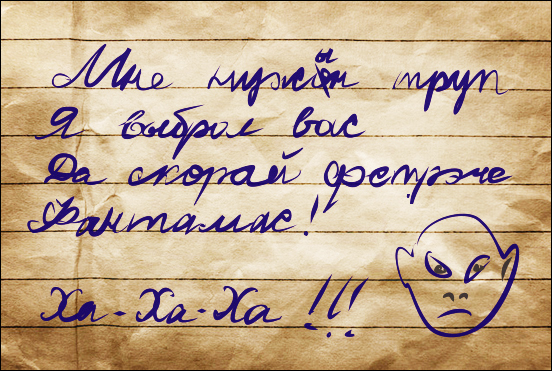 Мне нужын труп
Я выбрал вас
Да скорай фстрэче
Фантамас!
Ха-Ха-Ха !!!